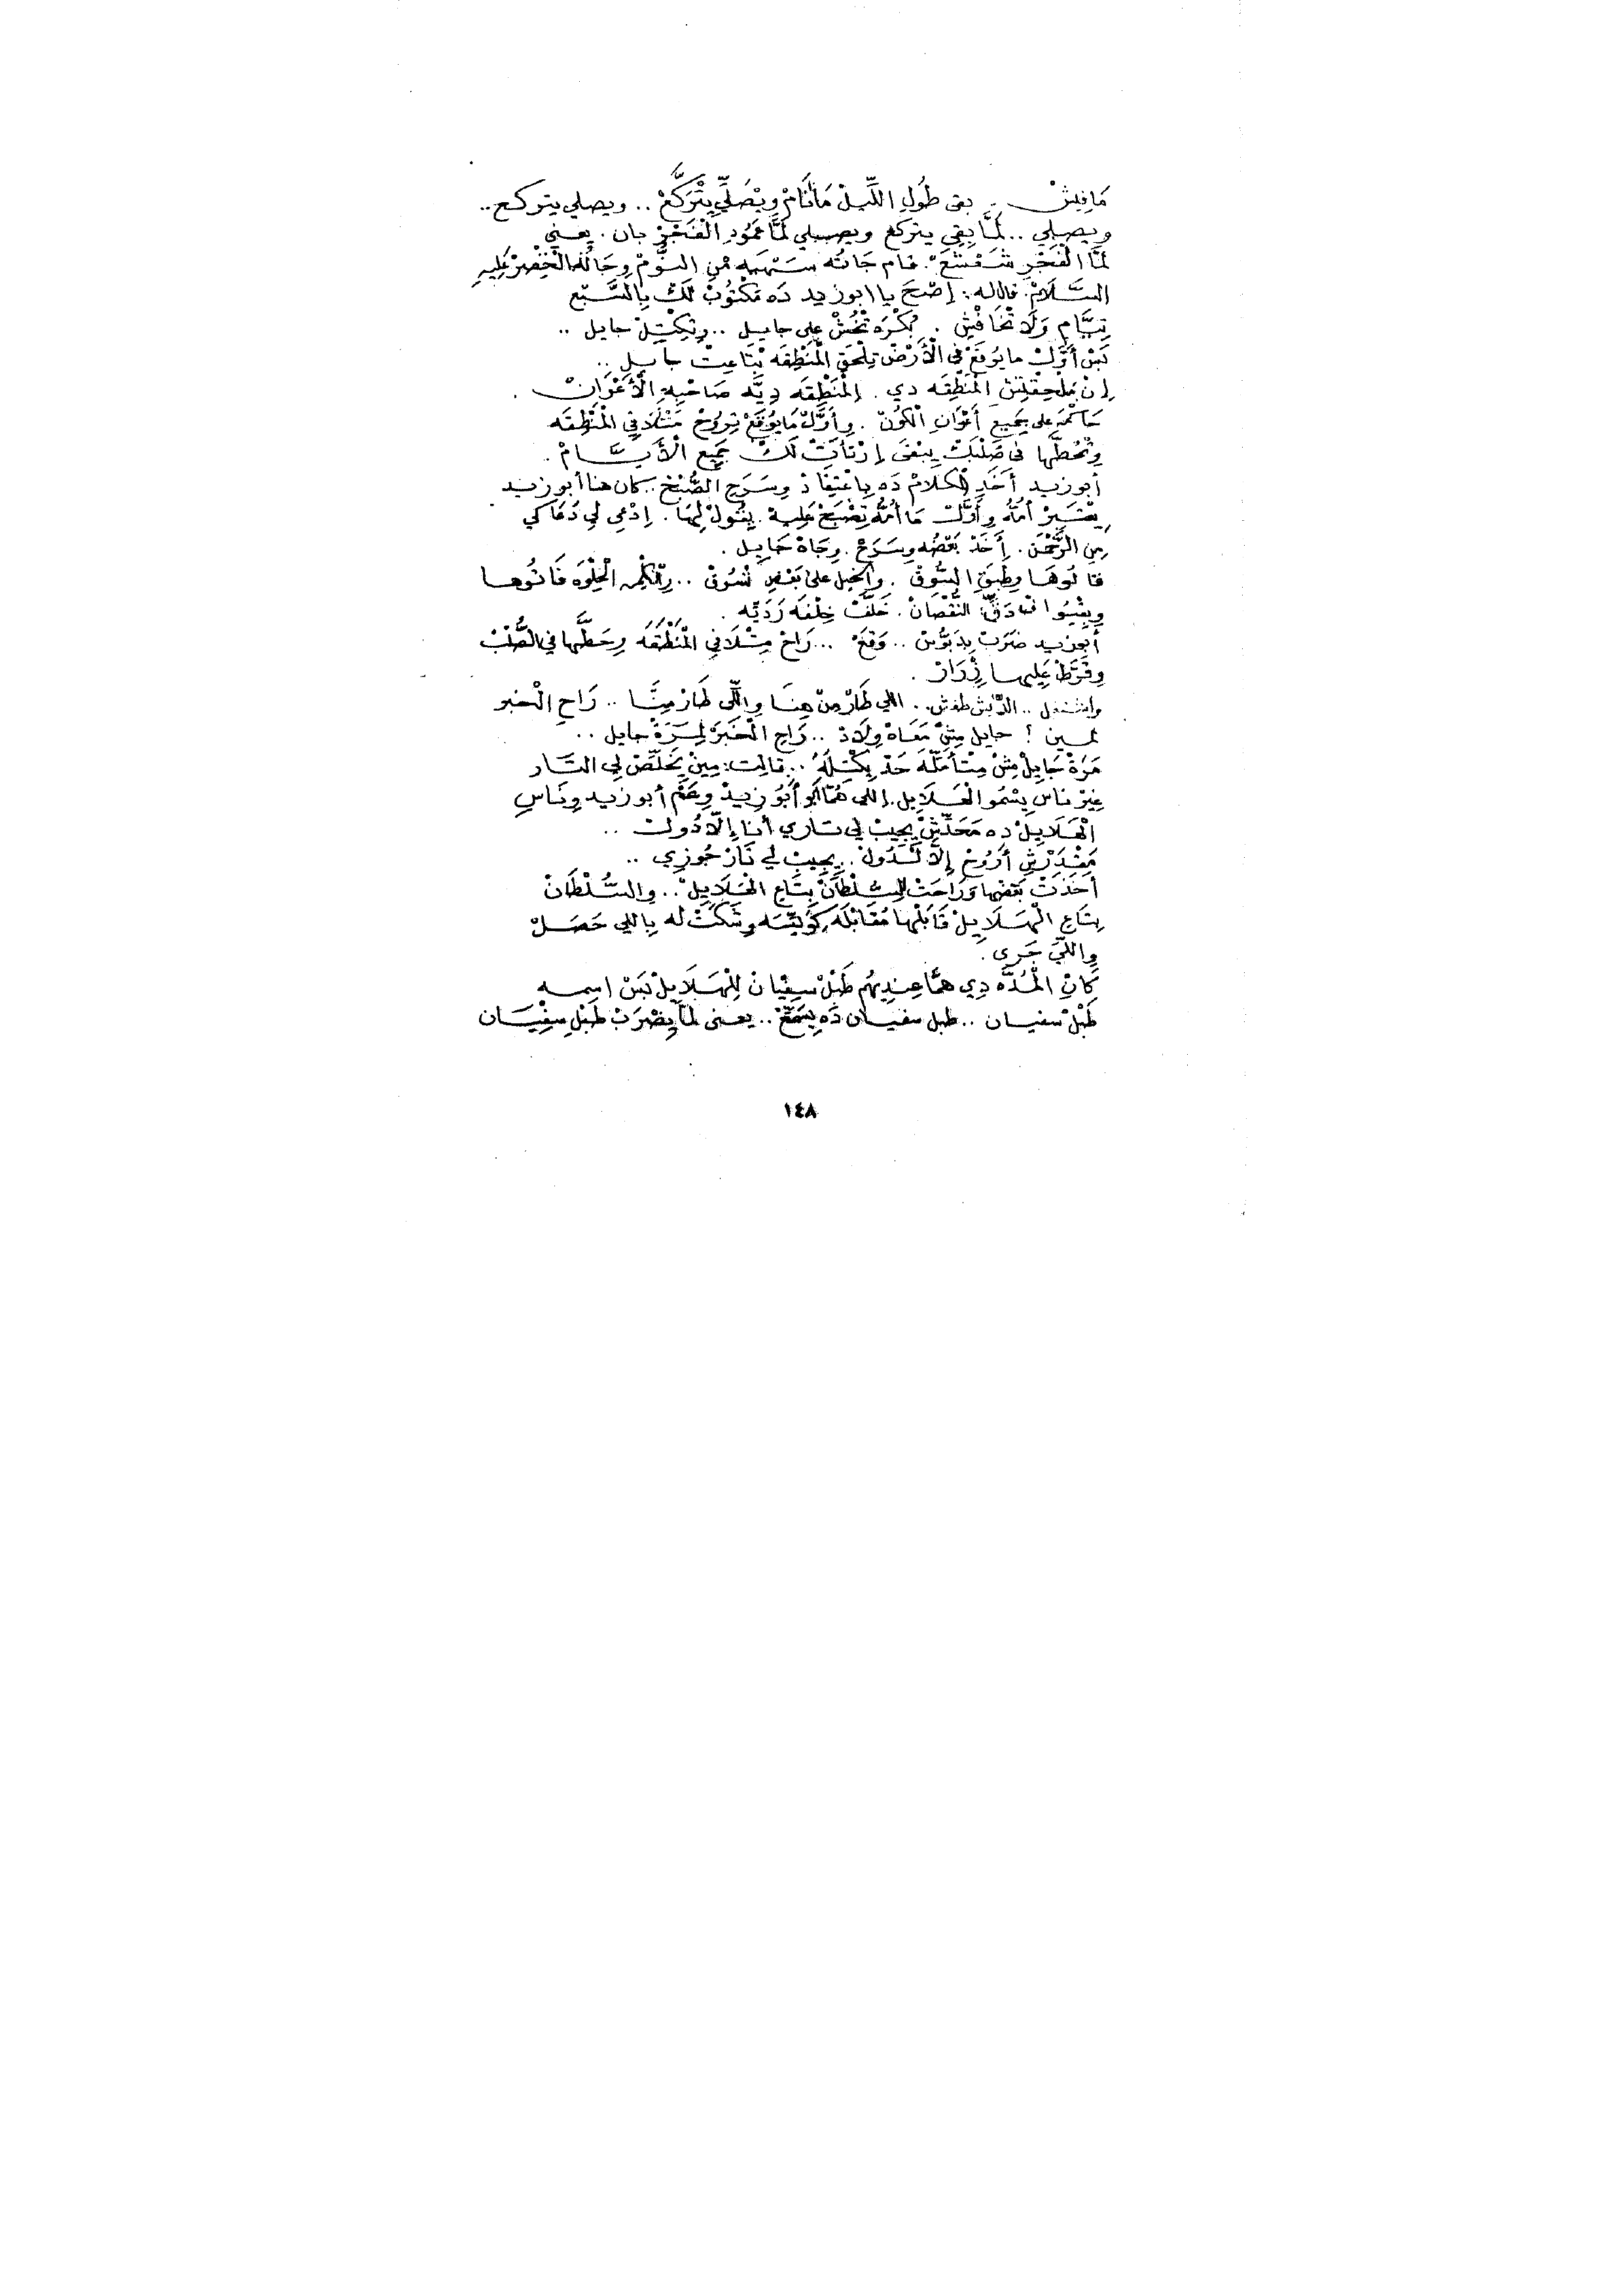 مَافِيشْ .. بقى طُولِ اللِّيلْ مَانَامْ وِيْصَلِّي يِتْرَكَّعْ .. ويصلي يتركع ..
ويصلي .. لَمَّا بِقِي يتركع ويصلي لَمَّا عَمُودِ الْفَجْرْ بان . يعني
لَمَّا الْفَجْرِ شَقْشَقْ . قام جَاتُه سَنْهَبِه مْنِ النُّومْ وِجَا لُه الْخِضْرْ عَلِيهِ
السَّلَامْ . قال له : إصْحَ يا ابو زيد دَه مَكْتُوبْ لَكْ بِالسَّبْعِ
تِيَّامِ وَلَا تْخَافْشِ . بُكْرَه تْخُشْ على حايل .. وِتِكْتِلْ حايل ..
بَسْ أَوَّلْ ما يُوقَعْ فِي الْأَرْضْ تِلْحَقِ الْمَنْطِقَه بْتَاعِتْ حايل ..
إِنْ مَلْحِقْتِشِ الْمَنْطِقَه دي . الْمَنْطِقَه دِيَّه صَاحْبِةِ الْأَعْوَانْ .
حَاكْمَه على جَمِيعْ أَعْوَانِ الْكُونْ . وِأَوَّلْ مَا يُوقَعْ تِرُوحْ مَنْتِلَا فِي الْمَنْطِقَه
وِتْحُطَّهَا في صُلْبَكْ يِبْقَى إِرْتَاحِتْ لَكْ جَمِيعِ الْأَيَّامْ .
أبو زيد أَخَدِ الْكَلَامْ دَه بِاعْتِقَادْ وِسَرَحِ الصُّبْحْ . كان هنا أبو زيد
يِعْتَبِرْ أُمُّه وِأَوَّلْ مَا أُمُّه تِصْبَحْ عَلِيه . يِقُولْ لِهَا . إِدْعِي لِي دُعَاكِي
مِنِ الرَّحْمَنْ . أَخَدْ بَعْضُه وِسَرَحْ . وِجَاهْ حَايِلْ .
قالُوهَا وِطَبَقِ السُّوقْ . والخيل على بَعْضِ تْسُوقْ .. وِالْكِلْمِه الْحِلْوَه فَاتُوها
وِبِقْيُوا في دَقِّ النُّقْصَانْ . خَلَّفْ خِلْفَه رَدِيِّه .
أبو زيد ضَرَبْ بِدَبُّوسْ .. وَقَعْ ... رَاحْ مِتْلَا فِي الْمَنْطِقَه وِحَطَّهَا فِي الصُّلْبْ
وِقَرَّطْ عَلِيهَا زْرَارْ .
واشتغل .. الدَّبْش طفش .. اللي طَارْ مِنْ هِنَا وِاللِّي طَارْ مِنَّا .. رَاحِ الْخبر
لمين ؟ حايل مِشْ مَعَاهْ وِلَادْ .. رَاحِ الْخَبَرْ لِمَرَةْ حايل ..
مَرَةْ حَايِلْ مِشْ مِتْأَمِّلَه حَدْ يِكْتِلُه .. قالت : مِينْ يْخَلَّصْ لِي التَّار
غِيرْ نَاسْ يِسْمُو الْهَلَايِلْ . اللي هُمَّا أبو أَبُو زِيدْ وِعَمْ أبو زيد ونَاسِ
الْهَلَايِلْ دِه مَحَدِّشْ يِجِيبْ لِي تاري أنا إلّا دُولْ ..
مَقْدَرْشِ أَرُوحْ إِلَّا لْدُولْ .. يِجِيبْ لِي تَارْ جُوزِي ..
أَخَدَتْ بَعْضِهَا وِرَاحَتْ لِلسُّلْطَانْ بِتَاعِ الْهَلَايِلْ .. وِالسُّلْطَانْ
بِتَاعِ الْهَلَايِلْ قَابَلْهَا مُقَابْلَه كُوَيِّسَه وِشَكَتْ لُه بِاللي حَصَلْ
وِاللِّي جَرَى .
كَانِ الْمُدَّه دِي هُمَّا عِنْدِيهُم طَبْلْ سِفْيَانْ لِلْهَلَايِلْ بَسْ اسمه
طَبْلْ سفيان .. طبل سفيان دَه يِسَمَّعْ .. يعنى لَمَّا يِضْرَبْ طَبْلِ سِفْيَان
١٤٨